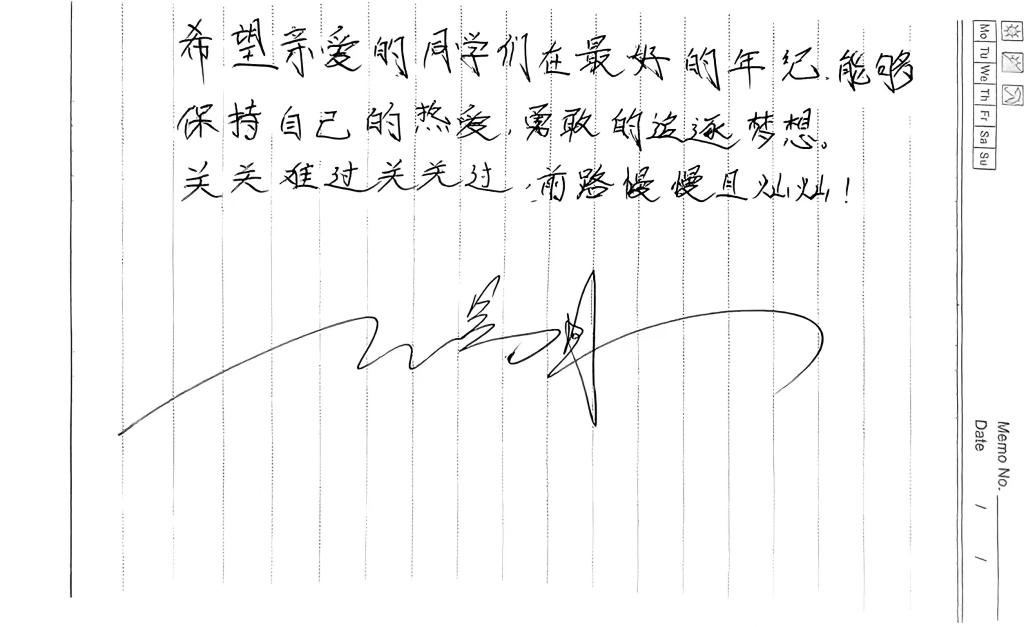 希望亲爱的同学们在最好的年纪,能够
保持自己的热爱,勇敢的追逐梦想。
关关难过关关过,前路慢慢且灿灿!
Mo Tu We Th Fr Sa Su
Memo No.
Date / /